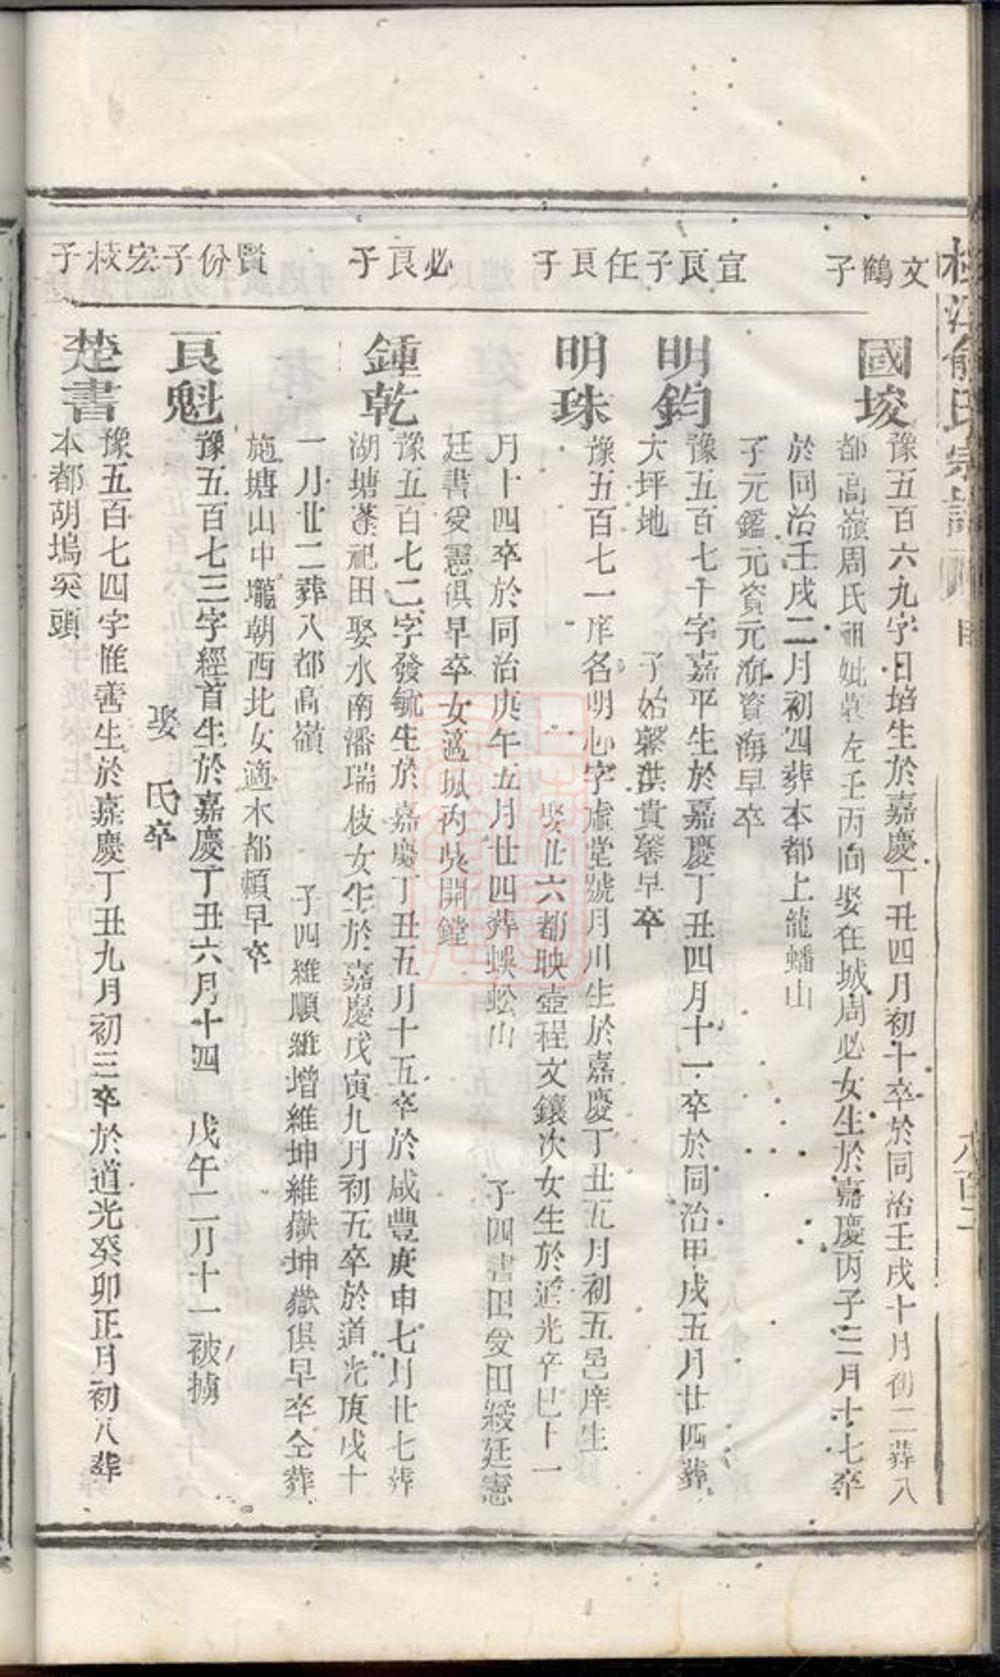 俞氏宗譜
文鶴子
國埈
豫五百六九字日培生於嘉慶丁丑四月初十卒於同治壬戌十月初二葬八
都高嶺周氏祖妣塟左壬丙向娶在城周必女生於嘉慶丙子二月十七卒
於同治壬戌二月初四葬本都上龍蟠山
子元鑑元資元海資海早卒
宣良子
明鈞
豫五百七十字嘉平生於嘉慶丁丑四月十一卒於同治甲戌五月廿四葬
大坪地 子始馨洪貴馨早卒
任良子
明珠
豫五百七一庠名明心字虛堂號月川生於嘉慶丁丑五月初五邑庠生
娶廿六都映壺程文鑲次女生於道光辛巳十一
月十四卒於同治庚午五月廿四葬蜈蚣山 子四書田受田廷憲
廷書受憲俱早卒女適 內 開鏜
必良子
鍾乾
豫五百七二字發毓生於嘉慶丁丑五月十五卒於咸豐庚申七月廿七葬
湖塘塟祀田娶水南潘瑞枝女生於嘉慶戊寅九月初五卒於道光庚戌十
一月廿二葬八都高嶺 子四維順維增維坤維嶽坤嶽俱早卒仝葬
施塘山中壠朝西北女適本都頓早卒
賢份子
良魁
豫五百七三字經首生於嘉慶丁丑六月十四 戊午二月十一被擄
娶 氏卒
宏枝子
楚書
豫五百七四字惟善生於嘉慶丁丑九月初三卒於道光癸卯正月初八葬
本都胡塢突頭